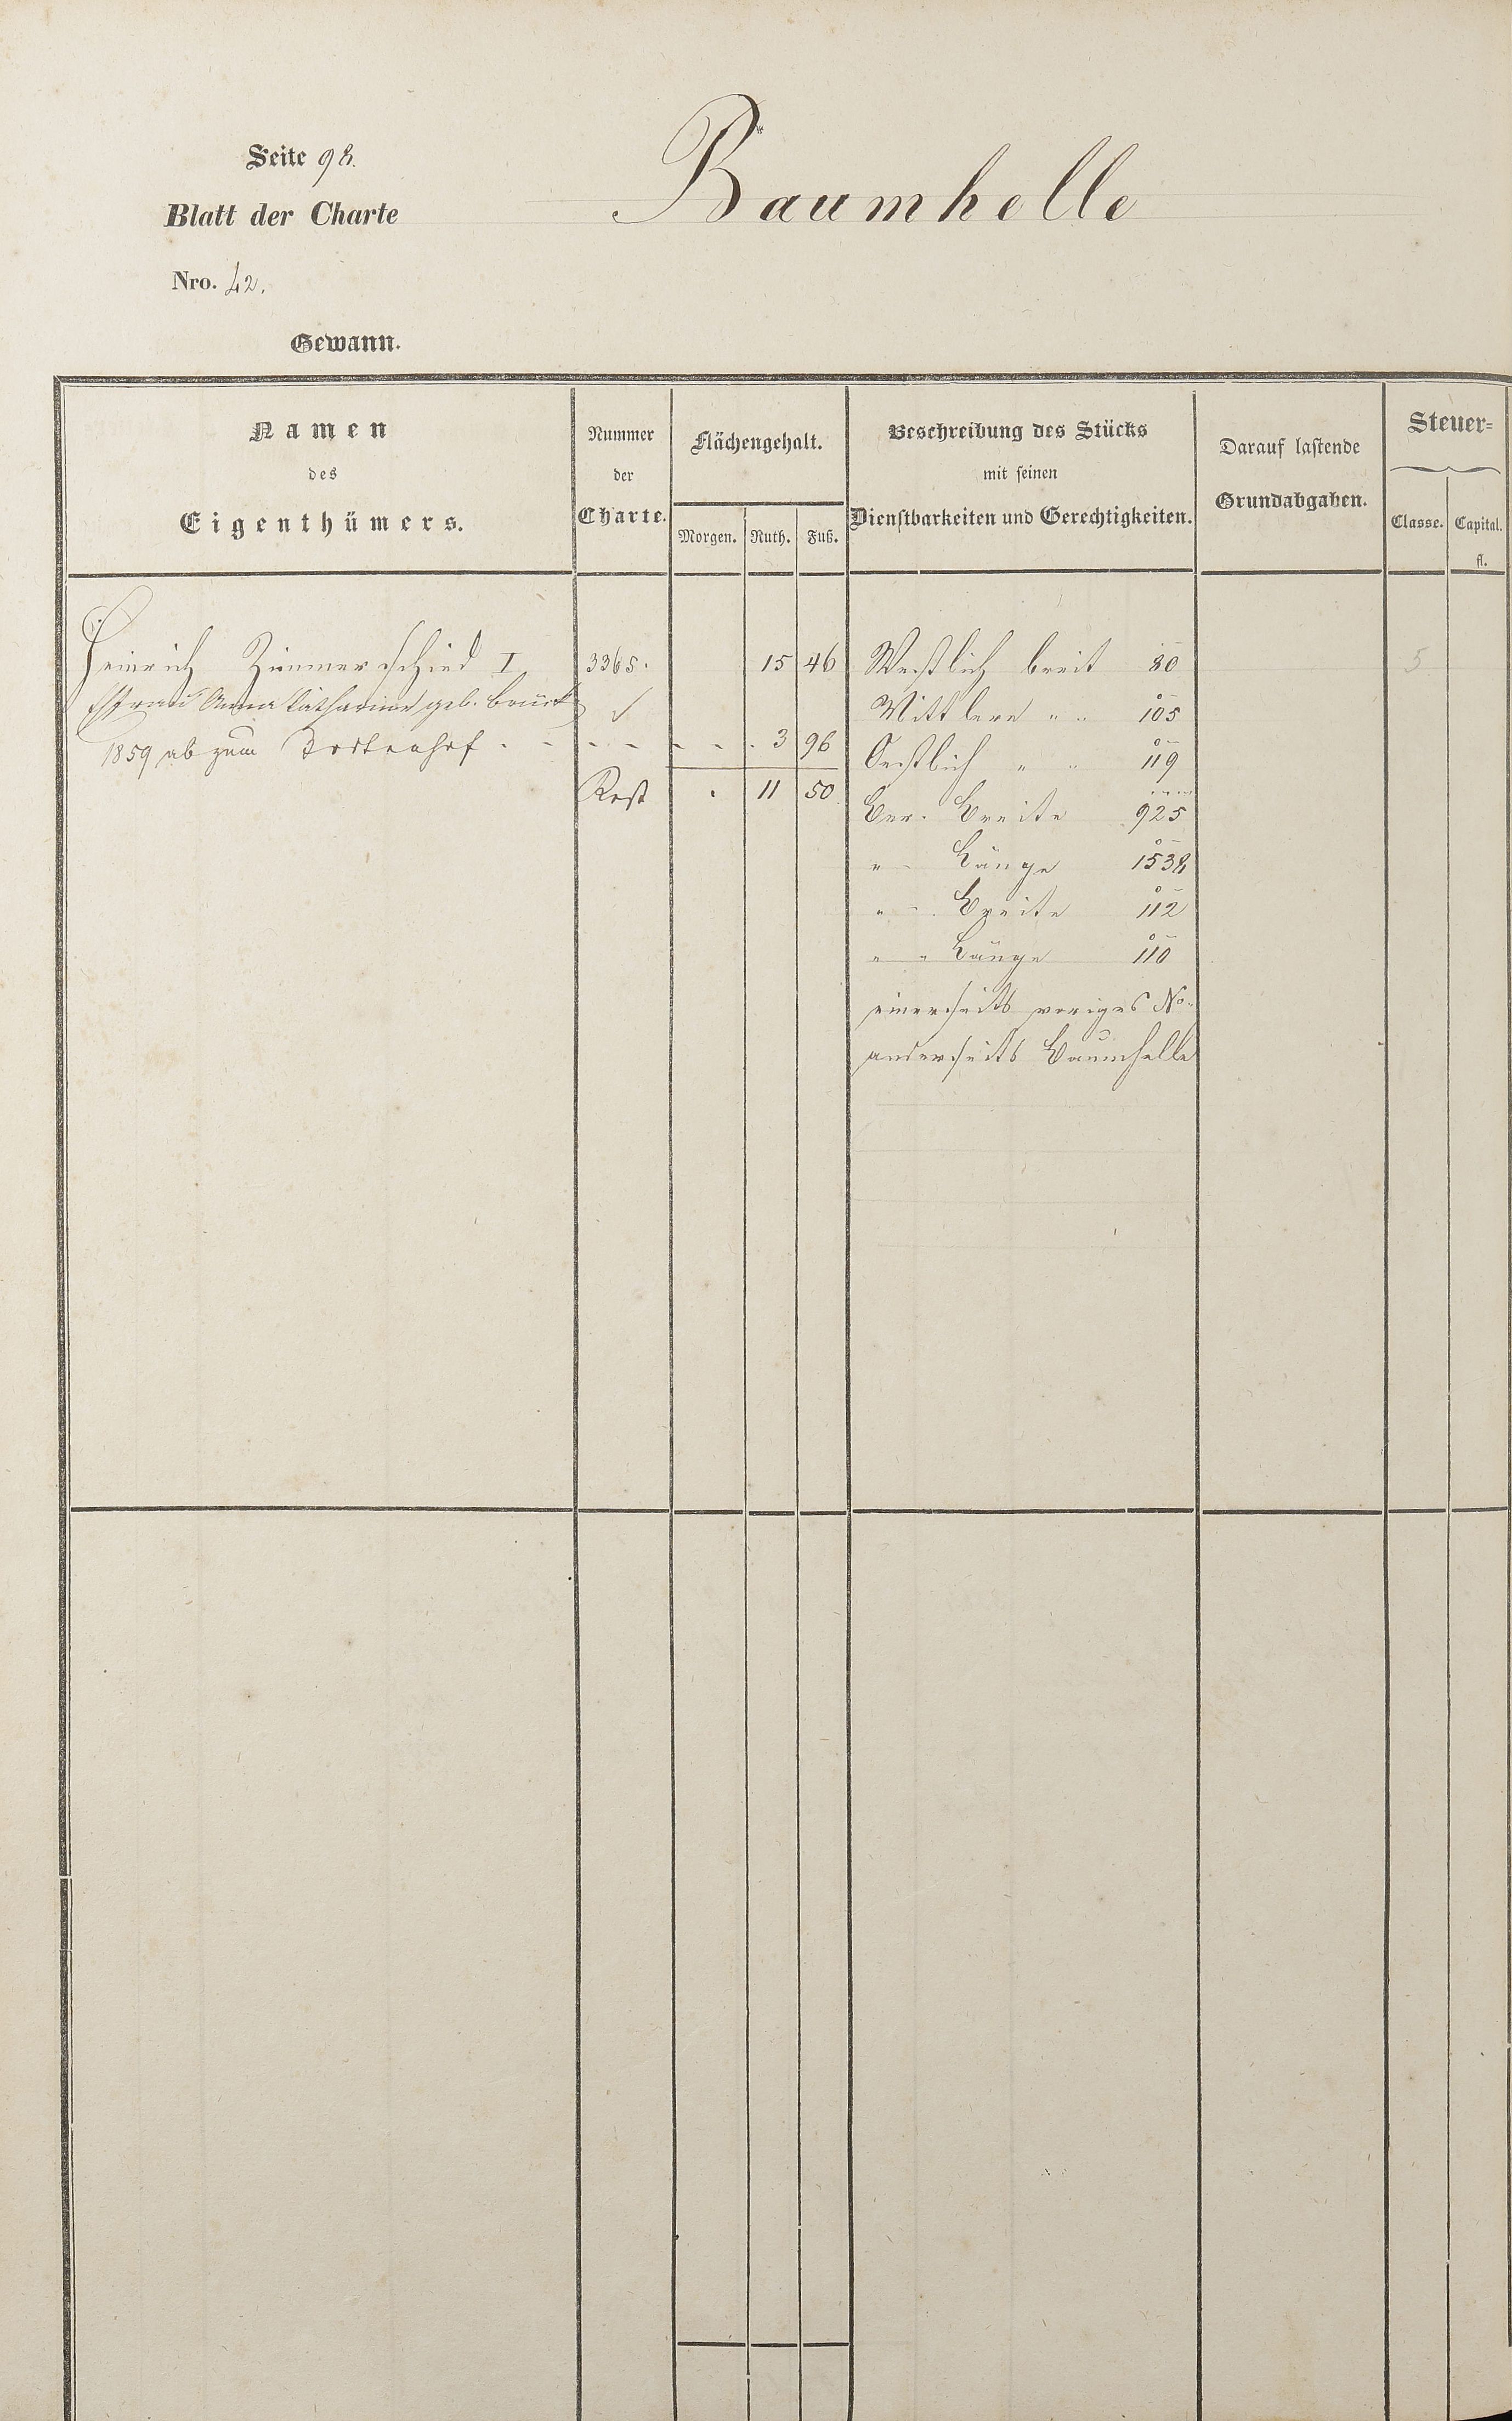 Seite 98.
Baumhelle
Blatt der Charte
Nro. 42.
Gewann.
Namen
des
Eigenthümers.
Nummer
der
Charte.
Flächengehalt.
Morgen. Ruth. Fuß.
Beschreibung des Stücks
mit seinen
Dienstbarkeiten und Gerechtigkeiten.
Darauf lastende
Grundabgaben.
Steuer=
Classe. Capital.
fl.
Heinrich Zimmerschied I 3365. 15 46 Westlich breit 80 5
Ehfrau Anna Catharine geb. Mittlere " " 105
1859 ab zum Dostenhof - - - - - - . 3 96 Oestlich " " 119
Rest . 11 50 Ber. Breite 925
" - Länge 1538
" - Breite 112
" " Länge 110
einerseits voriges No.
anderseits Baumhelle